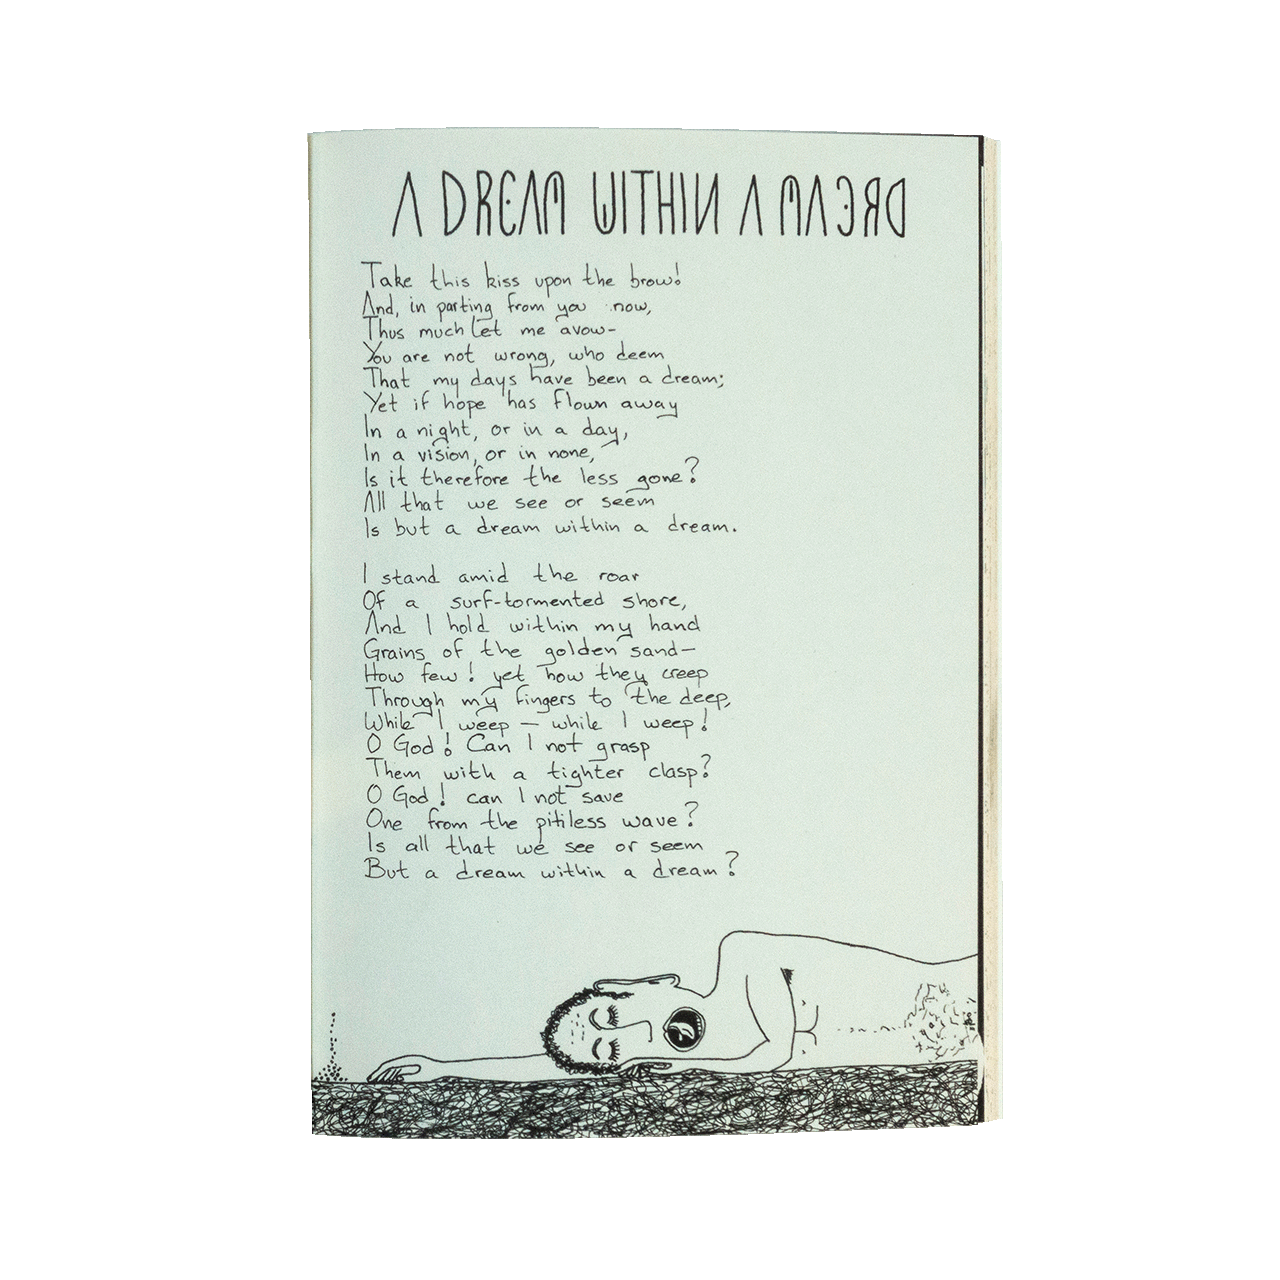 A DREAM WITHIN A MAERD
Take this kiss upon the brow!
And, in parting from you now,
Thus much let me avow-
You are not wrong, who deem
That my days have been a dream;
Yet if hope has flown away
In a night, or in a day,
In a vision, or in none,
Is it therefore the less gone?
All that we see or seem
Is but a dream within a dream.
I stand amid the roar
Of a surf-tormented shore,
And I hold within my hand
Grains of the golden sand—
How few! yet how they creep
Through my fingers to the deep,
While I weep — while I weep!
O God! Can I not grasp
Them with a tighter clasp?
O God! can I not save
One from the pitiless wave?
Is all that we see or seem
But a dream within a dream?